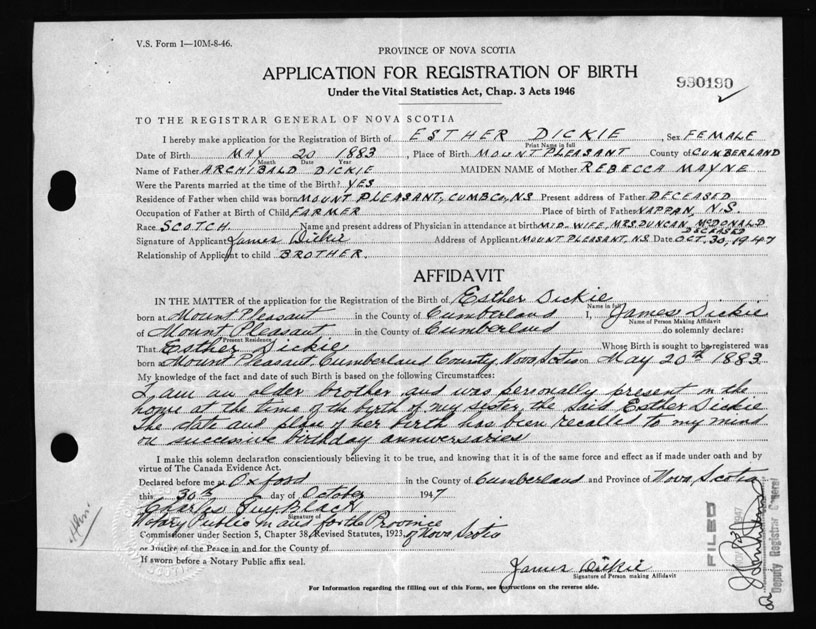 V.S. Form 1—10M-8-46.
PROVINCE OF NOVA SCOTIA
APPLICATION FOR REGISTRATION OF BIRTH
990190
Under the Vital Statistics Act, Chap. 3 Acts 1946
TO THE REGISTRAR GENERAL OF NOVA SCOTIA
I hereby make application for the Registration of Birth of ESTHER DICKIE, Sex FEMALE
Print Name in full
Date of Birth MAY 20 1883, Place of Birth MOUNT PLEASANT County of CUMBERLAND
Month Date Year
Name of Father ARCHIBALD DICKIE MAIDEN NAME of Mother REBECCA MAYNE
Were the Parents married at the time of the Birth? YES
Residence of Father when child was born MOUNT PLEASANT, CUMB CO, N.S Present address of Father DECEASED
Occupation of Father at Birth of Child FARMER Place of birth of Father NAPPAN, N.S.
Race SCOTCH. Name and present address of Physician in attendance at birth MID-WIFE, MRS. DUNCAN McDONALD
DECEASED
Signature of Applicant James Dickie Address of Applicant MOUNT PLEASANT, N.S Date OCT. 30, 1947
Relationship of Applicant to child BROTHER.
AFFIDAVIT
IN THE MATTER of the application for the Registration of the Birth of Esther Dickie
Name in full
born at Mount Pleasant in the County of Cumberland I, James Dickie
Name of Person Making Affidavit
of Mount Pleasant in the County of Cumberland do solemnly declare:
Present Residence
That Esther Dickie Whose Birth is sought to be registered was
born Mount Pleasant Cumberland County Nova Scotia on May 20th 1883
My knowledge of the fact and date of such Birth is based on the following Circumstances:
I am an older brother and was personally present in the
home at the time of the birth of my sister, the said Esther Dickie
The date and place of her birth has been recalled to my mind
on successive birthday anniversaries
I make this solemn declaration conscientiously believing it to be true, and knowing that it is of the same force and effect as if made under oath and by
virtue of The Canada Evidence Act.
Declared before me at Oxford in the County of Cumberland and Province of Nova Scotia
this 30th day of October 1947
Charles Guy Black
Signature of
Notary Public in and for the Province
Commissioner under Section 5, Chapter 38, Revised Statutes, 1923, of Nova Scotia
or Justice of the Peace in and for the County of
If sworn before a Notary Public affix seal.
James Dickie
Signature of Person making Affidavit
For Information regarding the filling out of this Form, see instructions on the reverse side.
FILED
1947
Deputy Registrar General